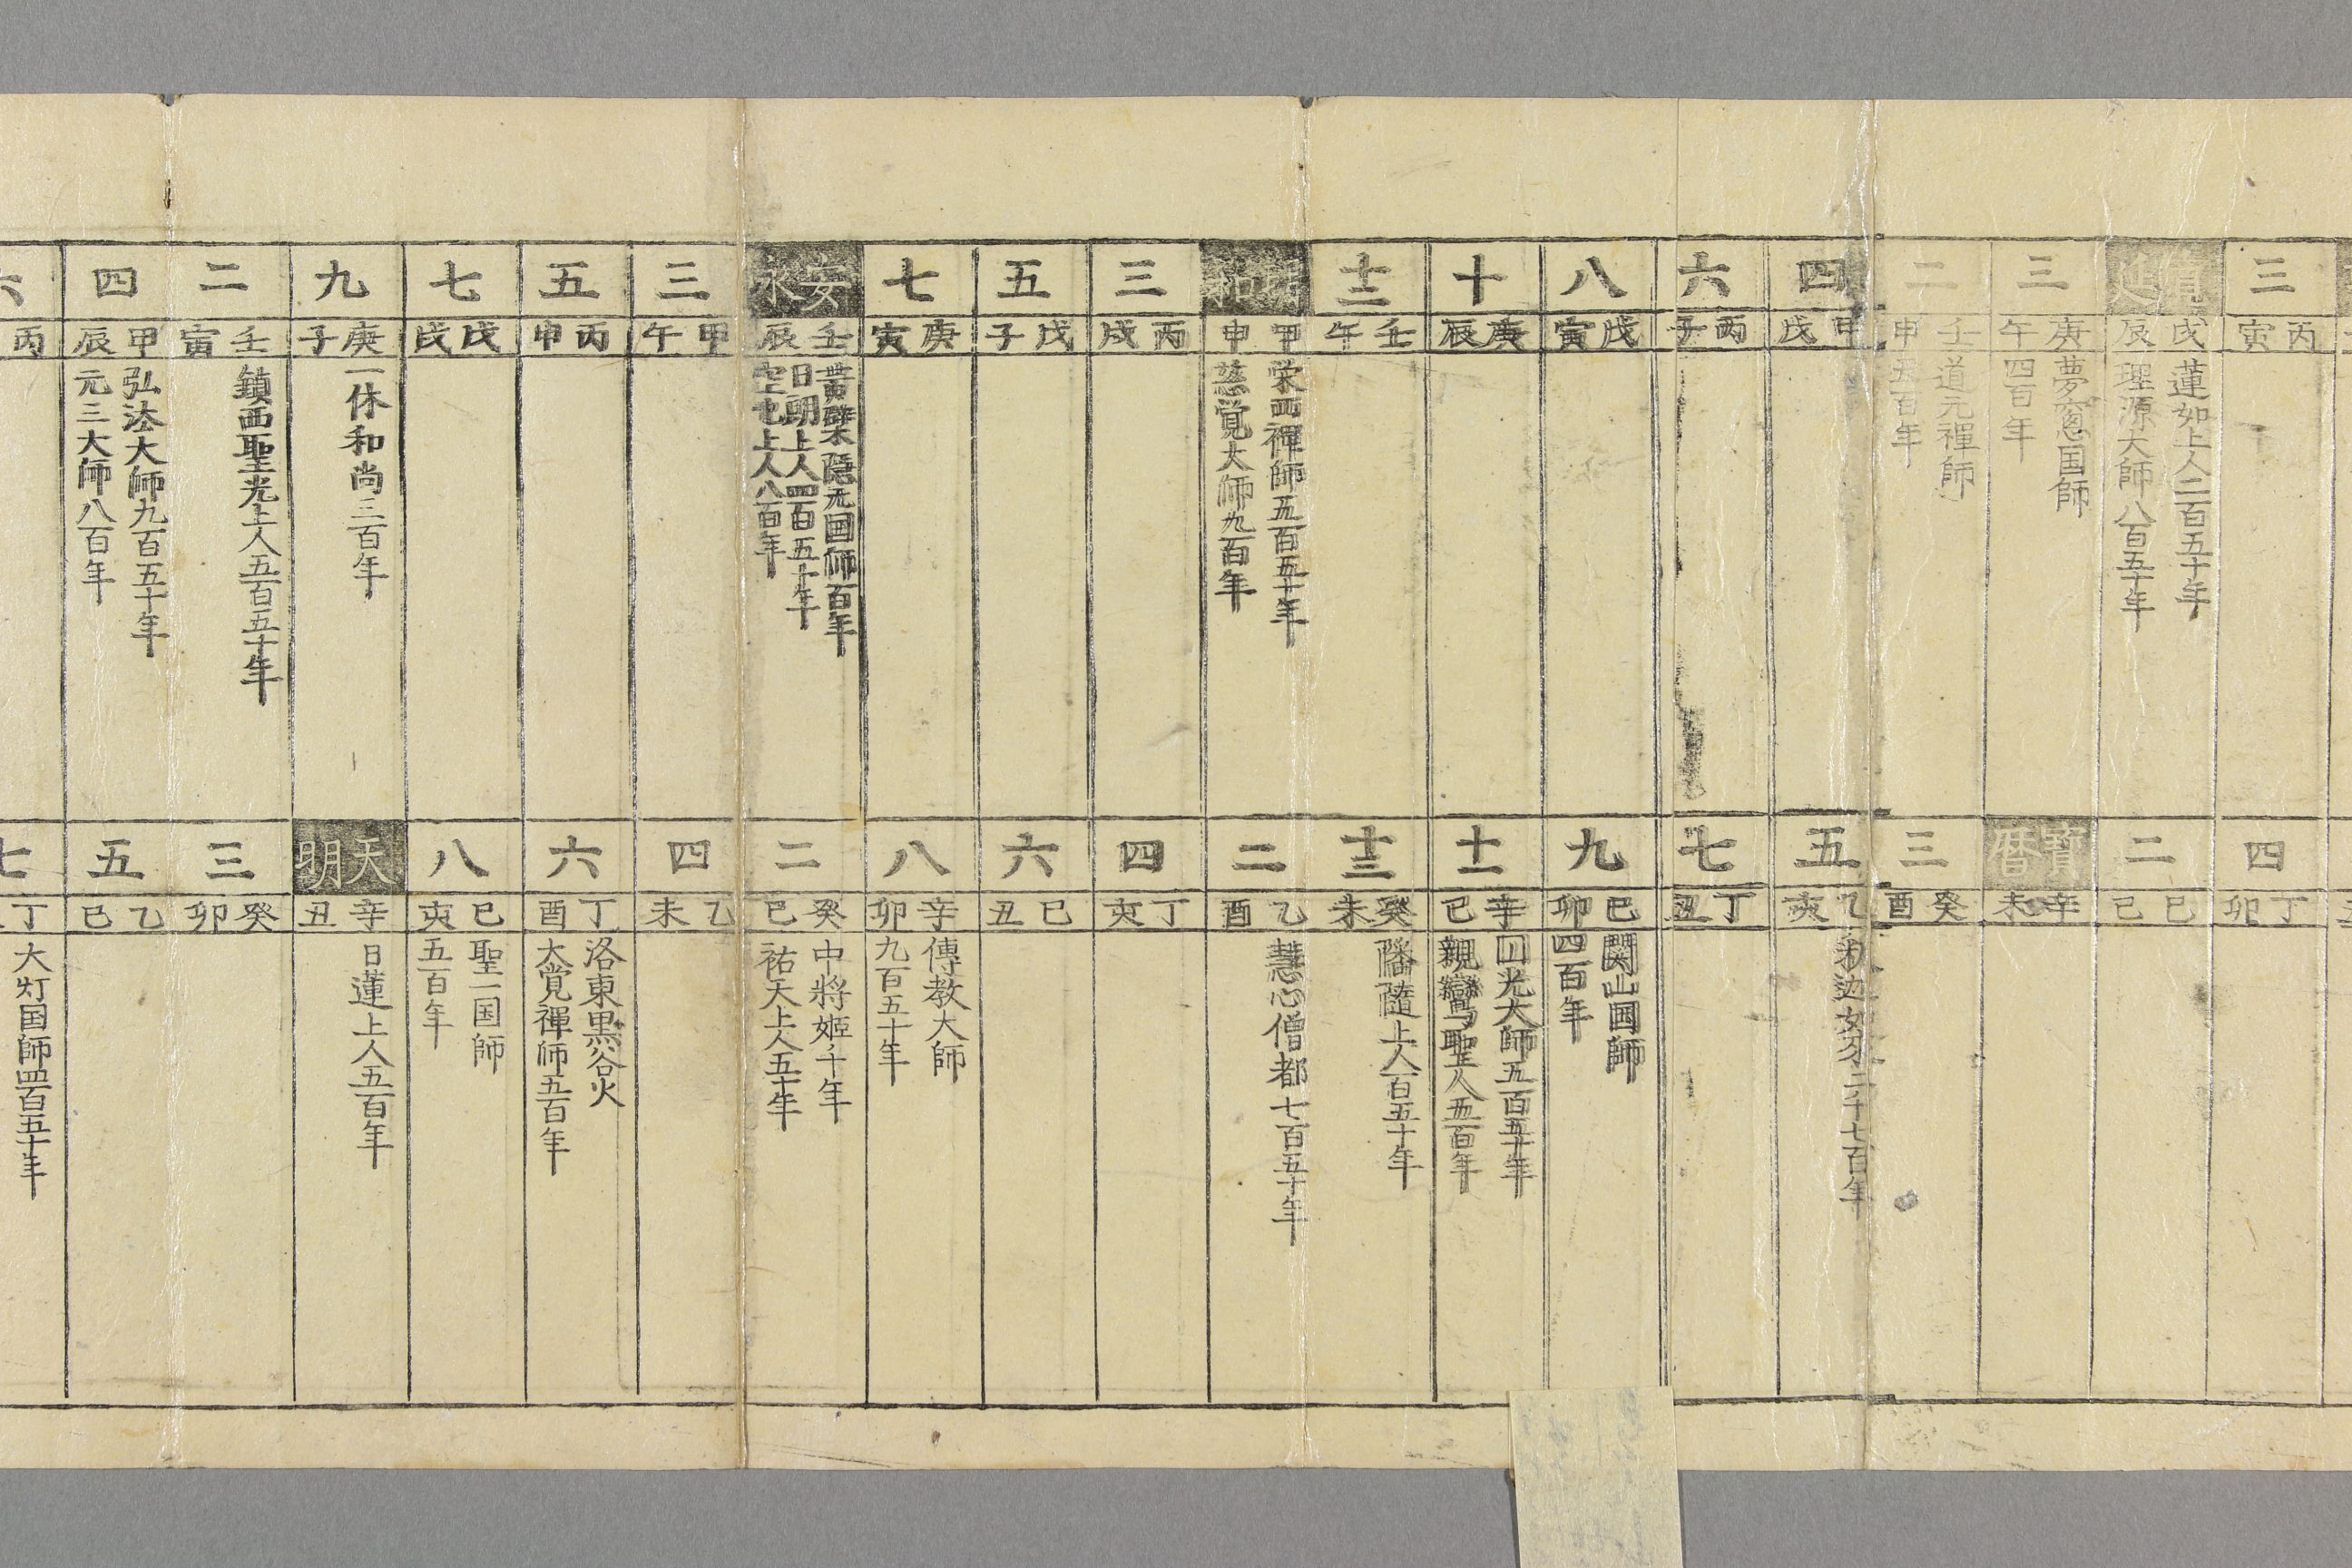 三
丙寅
四
丁卯
寛延
戊辰
蓮如上人二百五十年
理源大師八百五十年
二
巳巳
三
庚午
夢窓国師
四百年
寶暦
辛未
二
壬申
道元禪師
五百年
三
癸酉
四
甲戌
五
乙亥
釈迦如来二千七百年
六
丙子
七
丁丑
八
戊寅
九
巳卯
関山国師
四百年
十
庚辰
十一
辛巳
円光大師五百五十年
親鸞聖人五百年
十二
壬午
十三
癸未
隨上人百五十年
明和
甲申
栄西禪師五百五十年
慈覚大師九百年
二
乙酉
慧心僧都七百五十年
三
丙戌
四
丁亥
五
戊子
六
巳丑
七
庚寅
八
辛卯
傳教大師
九百五十年
安永
壬辰
黄檗隱元国師百年
日朗上人四百五十年
空也上人八百年
二
癸巳
中將姫千年
祐天上人五十年
三
甲午
四
乙未
五
丙申
六
丁酉
洛東黒谷火
大覚禪師五百年
七
戊戌
八
巳亥
聖一国師
五百年
九
庚子
一休和尚三百年
天明
辛丑
日蓮上人五百年
二
壬寅
鎮西聖光上人五百五十年
三
癸卯
四
甲辰
弘法大師九百五十年
元三大師八百年
五
乙巳
六
丙
七
丁
大灯国師四百五十年